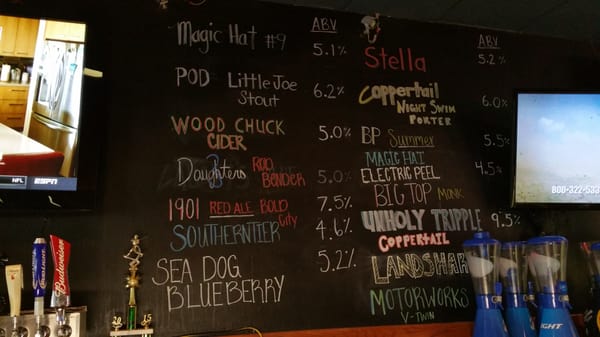 ABV
Magic Hat #9 5.1%
POD Little Joe 6.2%
Stout
WOOD CHUCK 5.0%
CIDER
Daughters ROD 5.0%
BENDER
1901 RED ALE BOLD 7.5%
City
SOUTHERNTIER 4.6%
SEA DOG 5.2%
BLUEBERRY
ABV
Stella 5.2%
Coppertail 6.0%
NIGHT SWIM
PORTER
BP Summer 5.5%
MAGIC HAT 4.5%
ELECTRIC PEEL
BIG TOP MONK
UNHOLY TRIPPLE 9.5%
COPPERTAIL
LANDSHARK
MOTORWORKS
V-TWIN
NFL ESPN
Budweiser
20 15
800-322-533
LIGHT